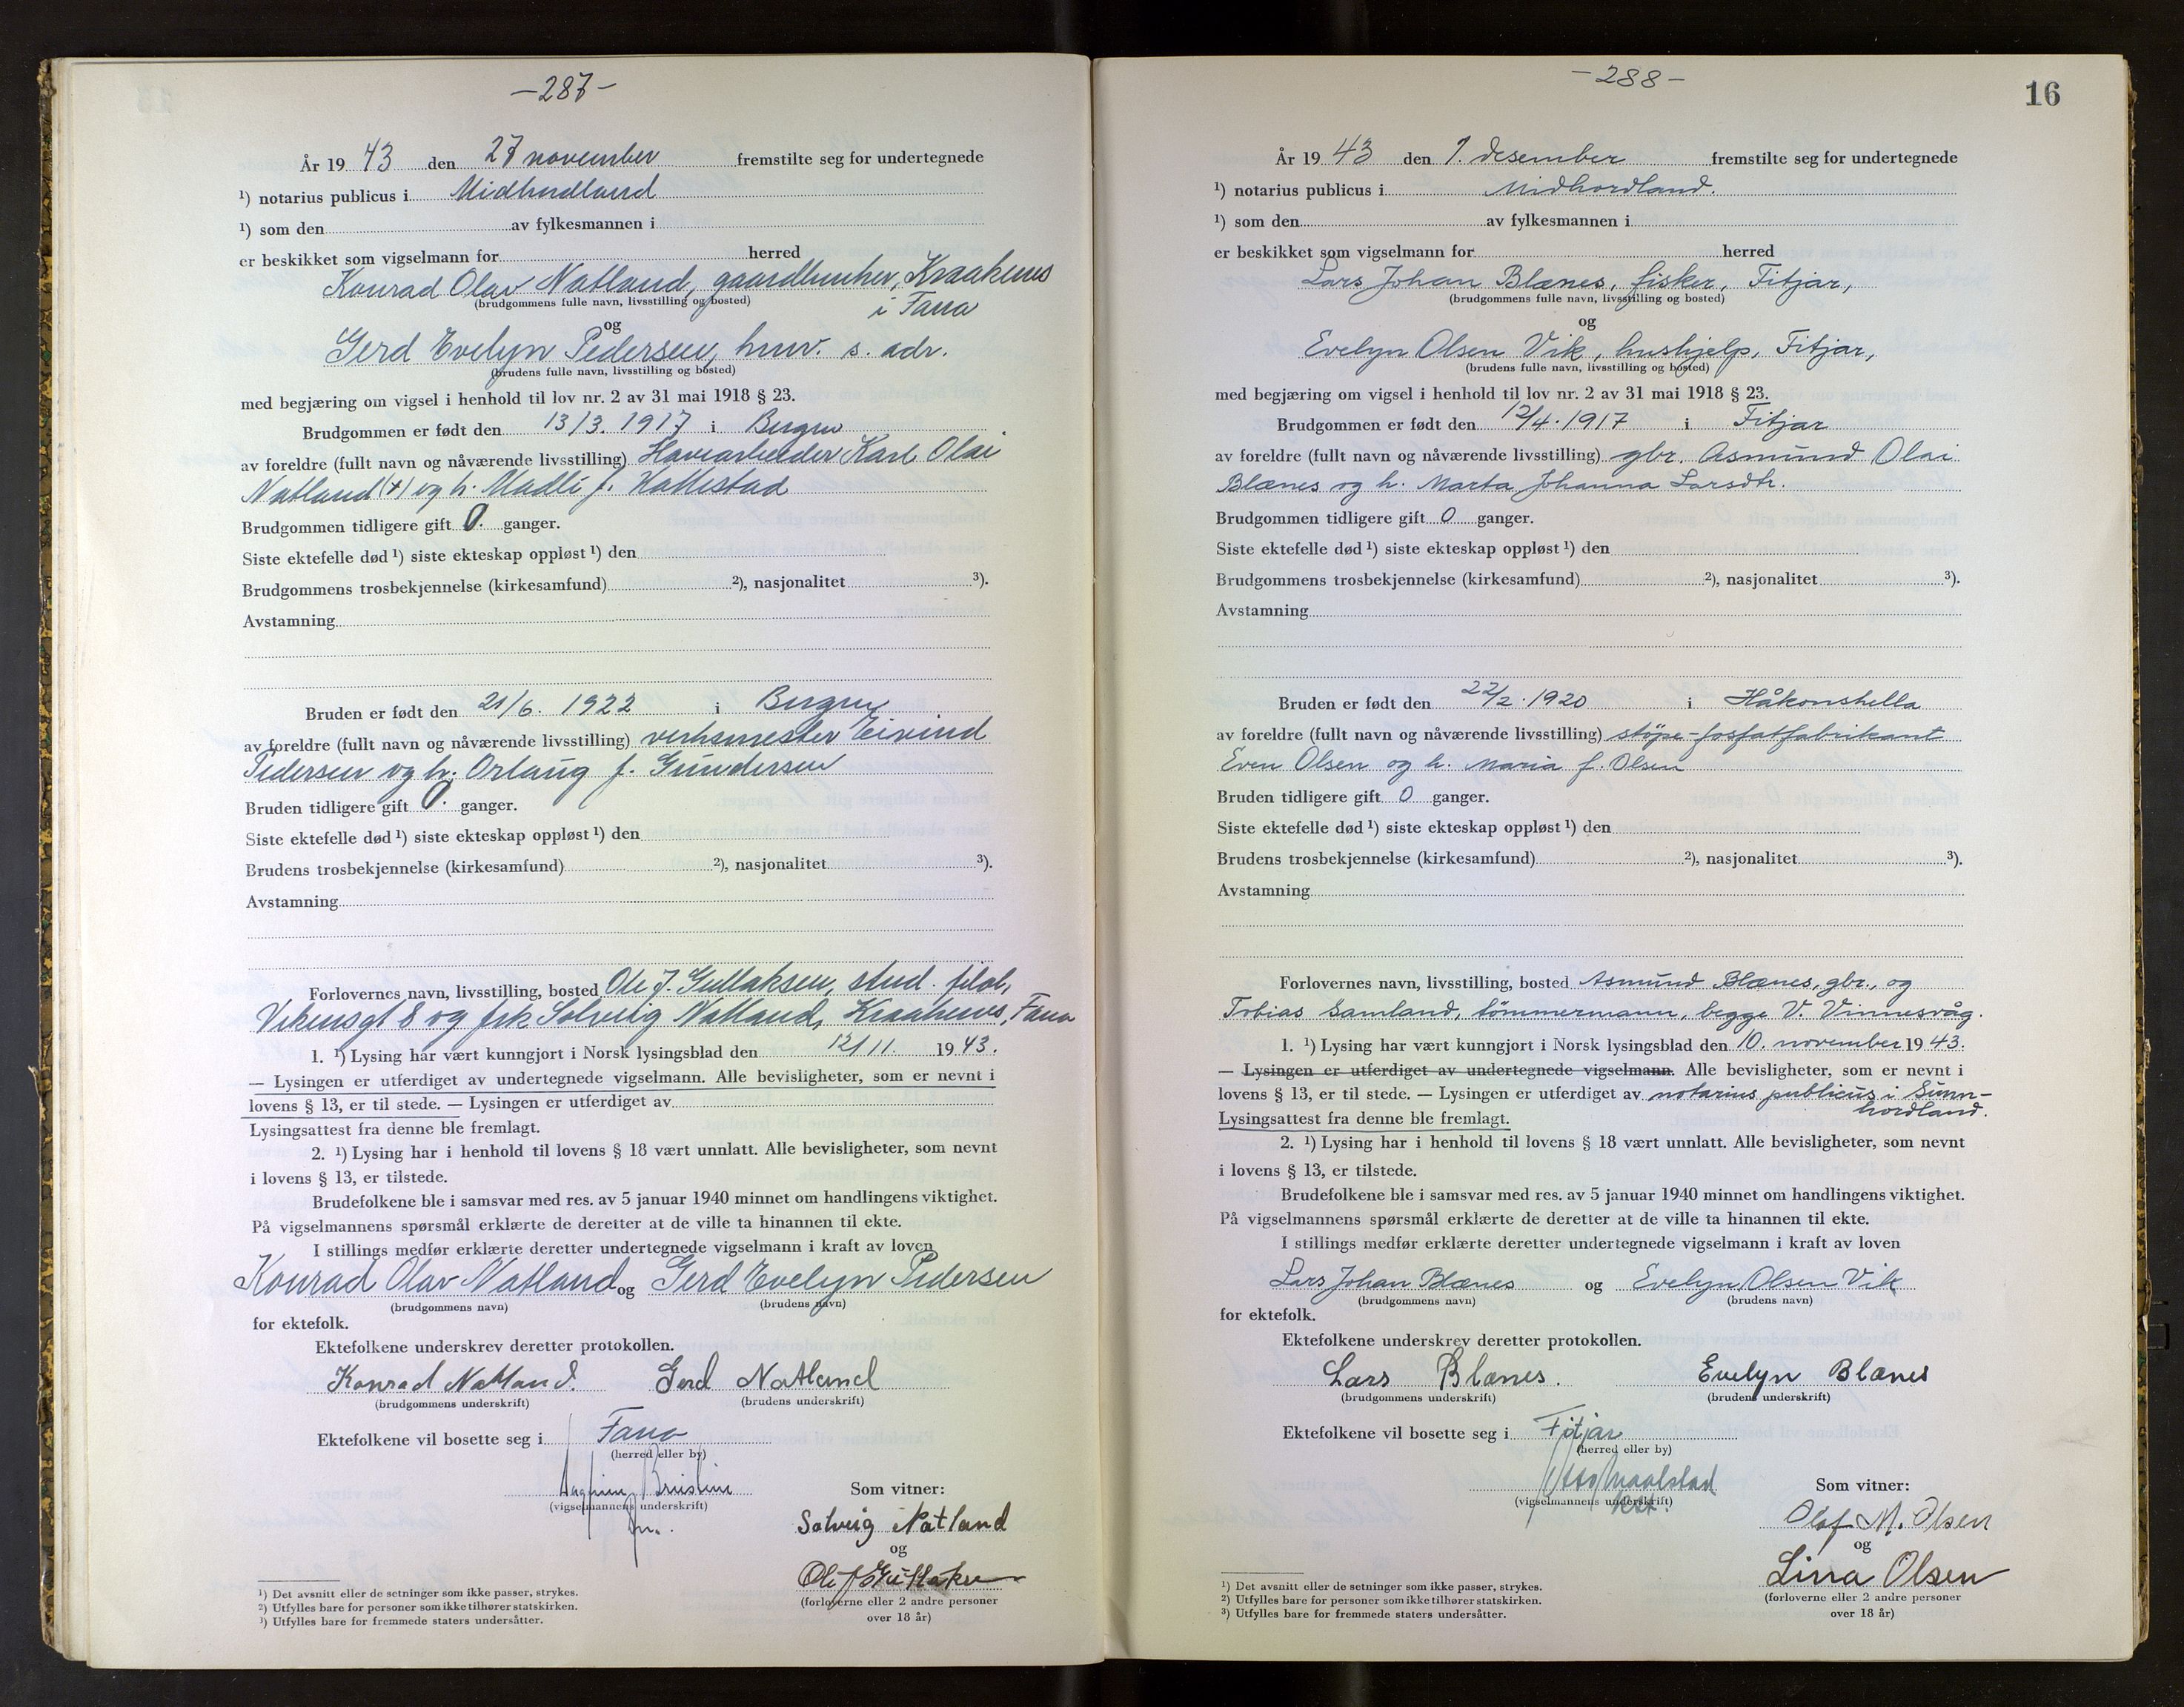 -287-
År 19 43 den 27 november fremstilte seg for undertegnede
¹) notarius publicus i Midhordland
¹) som den av fylkesmannen i
er beskikket som vigselmann for herred
Konrad Olav Natland, gaardbruker, Kraakenes
(brudgommens fulle navn, livsstilling og bosted)
i Fana
og
Gerd Evelyn Pedersen, husv. s. adr.
(brudens fulle navn, livsstilling og bosted)
med begjæring om vigsel i henhold til lov nr. 2 av 31 mai 1918 § 23.
Brudgommen er født den 13/3. 1917 i Bergen
av foreldre (fullt navn og nåværende livsstilling) Havnarbeider Karl Olai
Natland (+) og h. Madli f. Hattestad
Brudgommen tidligere gift 0. ganger.
Siste ektefelle død ¹) siste ekteskap oppløst ¹) den
Brudgommens trosbekjennelse (kirkesamfund) ²), nasjonalitet ³).
Avstamning
Bruden er født den 21/6. 1922 i Bergen
av foreldre (fullt navn og nåværende livsstilling) verksmester Eivind
Pedersen og h. Orlaug f. Gundersen
Bruden tidligere gift 0. ganger.
Siste ektefelle død ¹) siste ekteskap oppløst ¹) den
Brudens trosbekjennelse (kirkesamfund) ²), nasjonalitet ³).
Avstamning
Forlovernes navn, livsstilling, bosted Ole J. Gullaksen, stud. filol,
Vikensgt 8 og frk Solveig Natland, Kraakenes, Fana
1. ¹) Lysing har vært kunngjort i Norsk lysingsblad den 12/11. 19 43.
— Lysingen er utferdiget av undertegnede vigselmann. Alle bevisligheter, som er nevnt i
lovens § 13, er til stede. — Lysingen er utferdiget av
Lysingsattest fra denne ble fremlagt.
2. ¹) Lysing har i henhold til lovens § 18 vært unnlatt. Alle bevisligheter, som nevnt
i lovens § 13, er tilstede.
Brudefolkene ble i samsvar med res. av 5 januar 1940 minnet om handlingens viktighet.
På vigselmannens spørsmål erklærte de deretter at de ville ta hinannen til ekte.
I stillings medfør erklærte deretter undertegnede vigselmann i kraft av loven
Konrad Olav Natland og Gerd Evelyn Pedersen
(brudgommens navn) (brudens navn)
for ektefolk.
Ektefolkene underskrev deretter protokollen.
Konrad Natland. Gerd Natland
(brudgommens underskrift) (brudens underskrift)
Ektefolkene vil bosette seg i Fana
(herred eller by)
(vigselmannens underskrift)
Som vitner:
Solveig Natland
og
Ole J Gullaksen
(forloverne eller 2 andre personer
over 18 år)
¹) Det avsnitt eller de setninger som ikke passer, strykes.
²) Utfylles bare for personer som ikke tilhører statskirken.
³) Utfylles bare for fremmede staters undersåtter.
-288-
16
År 19 43 den 1. desember fremstilte seg for undertegnede
¹) notarius publicus i Midhordland.
¹) som den av fylkesmannen i
er beskikket som vigselmann for herred
Lars Johan Blænes, fisker, Fitjar,
(brudgommens fulle navn, livsstilling og bosted)
og
Evelyn Olsen Vik, hushjelp, Fitjar,
(brudens fulle navn, livsstilling og bosted)
med begjæring om vigsel i henhold til lov nr. 2 av 31 mai 1918 § 23.
Brudgommen er født den 12/4. 1917 i Fitjar
av foreldre (fullt navn og nåværende livsstilling) gbr. Asmund Olai
Blænes og h. Marta Johanna Larsdtr.
Brudgommen tidligere gift 0 ganger.
Siste ektefelle død ¹) siste ekteskap oppløst ¹) den
Brudgommens trosbekjennelse (kirkesamfund) ²), nasjonalitet ³).
Avstamning
Bruden er født den 22/2. 1920 i Håkonshella
av foreldre (fullt navn og nåværende livsstilling) støpe-fosfatfabrikant
Even Olsen og h. Maria f. Olsen
Bruden tidligere gift 0 ganger.
Siste ektefelle død ¹) siste ekteskap oppløst ¹) den
Brudens trosbekjennelse (kirkesamfund) ²), nasjonalitet ³).
Avstamning
Forlovernes navn, livsstilling, bosted Asmund Blænes, gbr., og
Tobias Samland, tømmermann, begge V. Vinnesvåg.
1. ¹) Lysing har vært kunngjort i Norsk lysingsblad den 10. november 19 43.
— Lysingen er utferdiget av undertegnede vigselmann. Alle bevisligheter, som er nevnt i
lovens § 13, er til stede. — Lysingen er utferdiget av notarius publicus i Sunn-
hordland.
Lysingsattest fra denne ble fremlagt.
2. ¹) Lysing har i henhold til lovens § 18 vært unnlatt. Alle bevisligheter, som nevnt
i lovens § 13, er tilstede.
Brudefolkene ble i samsvar med res. av 5 januar 1940 minnet om handlingens viktighet.
På vigselmannens spørsmål erklærte de deretter at de ville ta hinannen til ekte.
I stillings medfør erklærte deretter undertegnede vigselmann i kraft av loven
Lars Johan Blænes og Evelyn Olsen Vik
(brudgommens navn) (brudens navn)
for ektefolk.
Ektefolkene underskrev deretter protokollen.
Lars Blænes. Evelyn Blænes
(brudgommens underskrift) (brudens underskrift)
Ektefolkene vil bosette seg i Fitjar
(herred eller by)
Otto
(vigselmannens underskrift)
Som vitner:
Olaf M. Olsen
og
Lina Olsen
(forloverne eller 2 andre personer
over 18 år)
¹) Det avsnitt eller de setninger som ikke passer, strykes.
²) Utfylles bare for personer som ikke tilhører statskirken.
³) Utfylles bare for fremmede staters undersåtter.